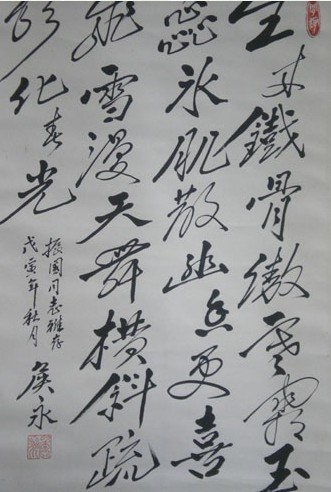 生来铁骨傲寒霜玉
蕊冰肌散幽香更喜
飛雪漫天舞横斜疏
影化春光
振国同志雅存
戊寅年秋月
侯永